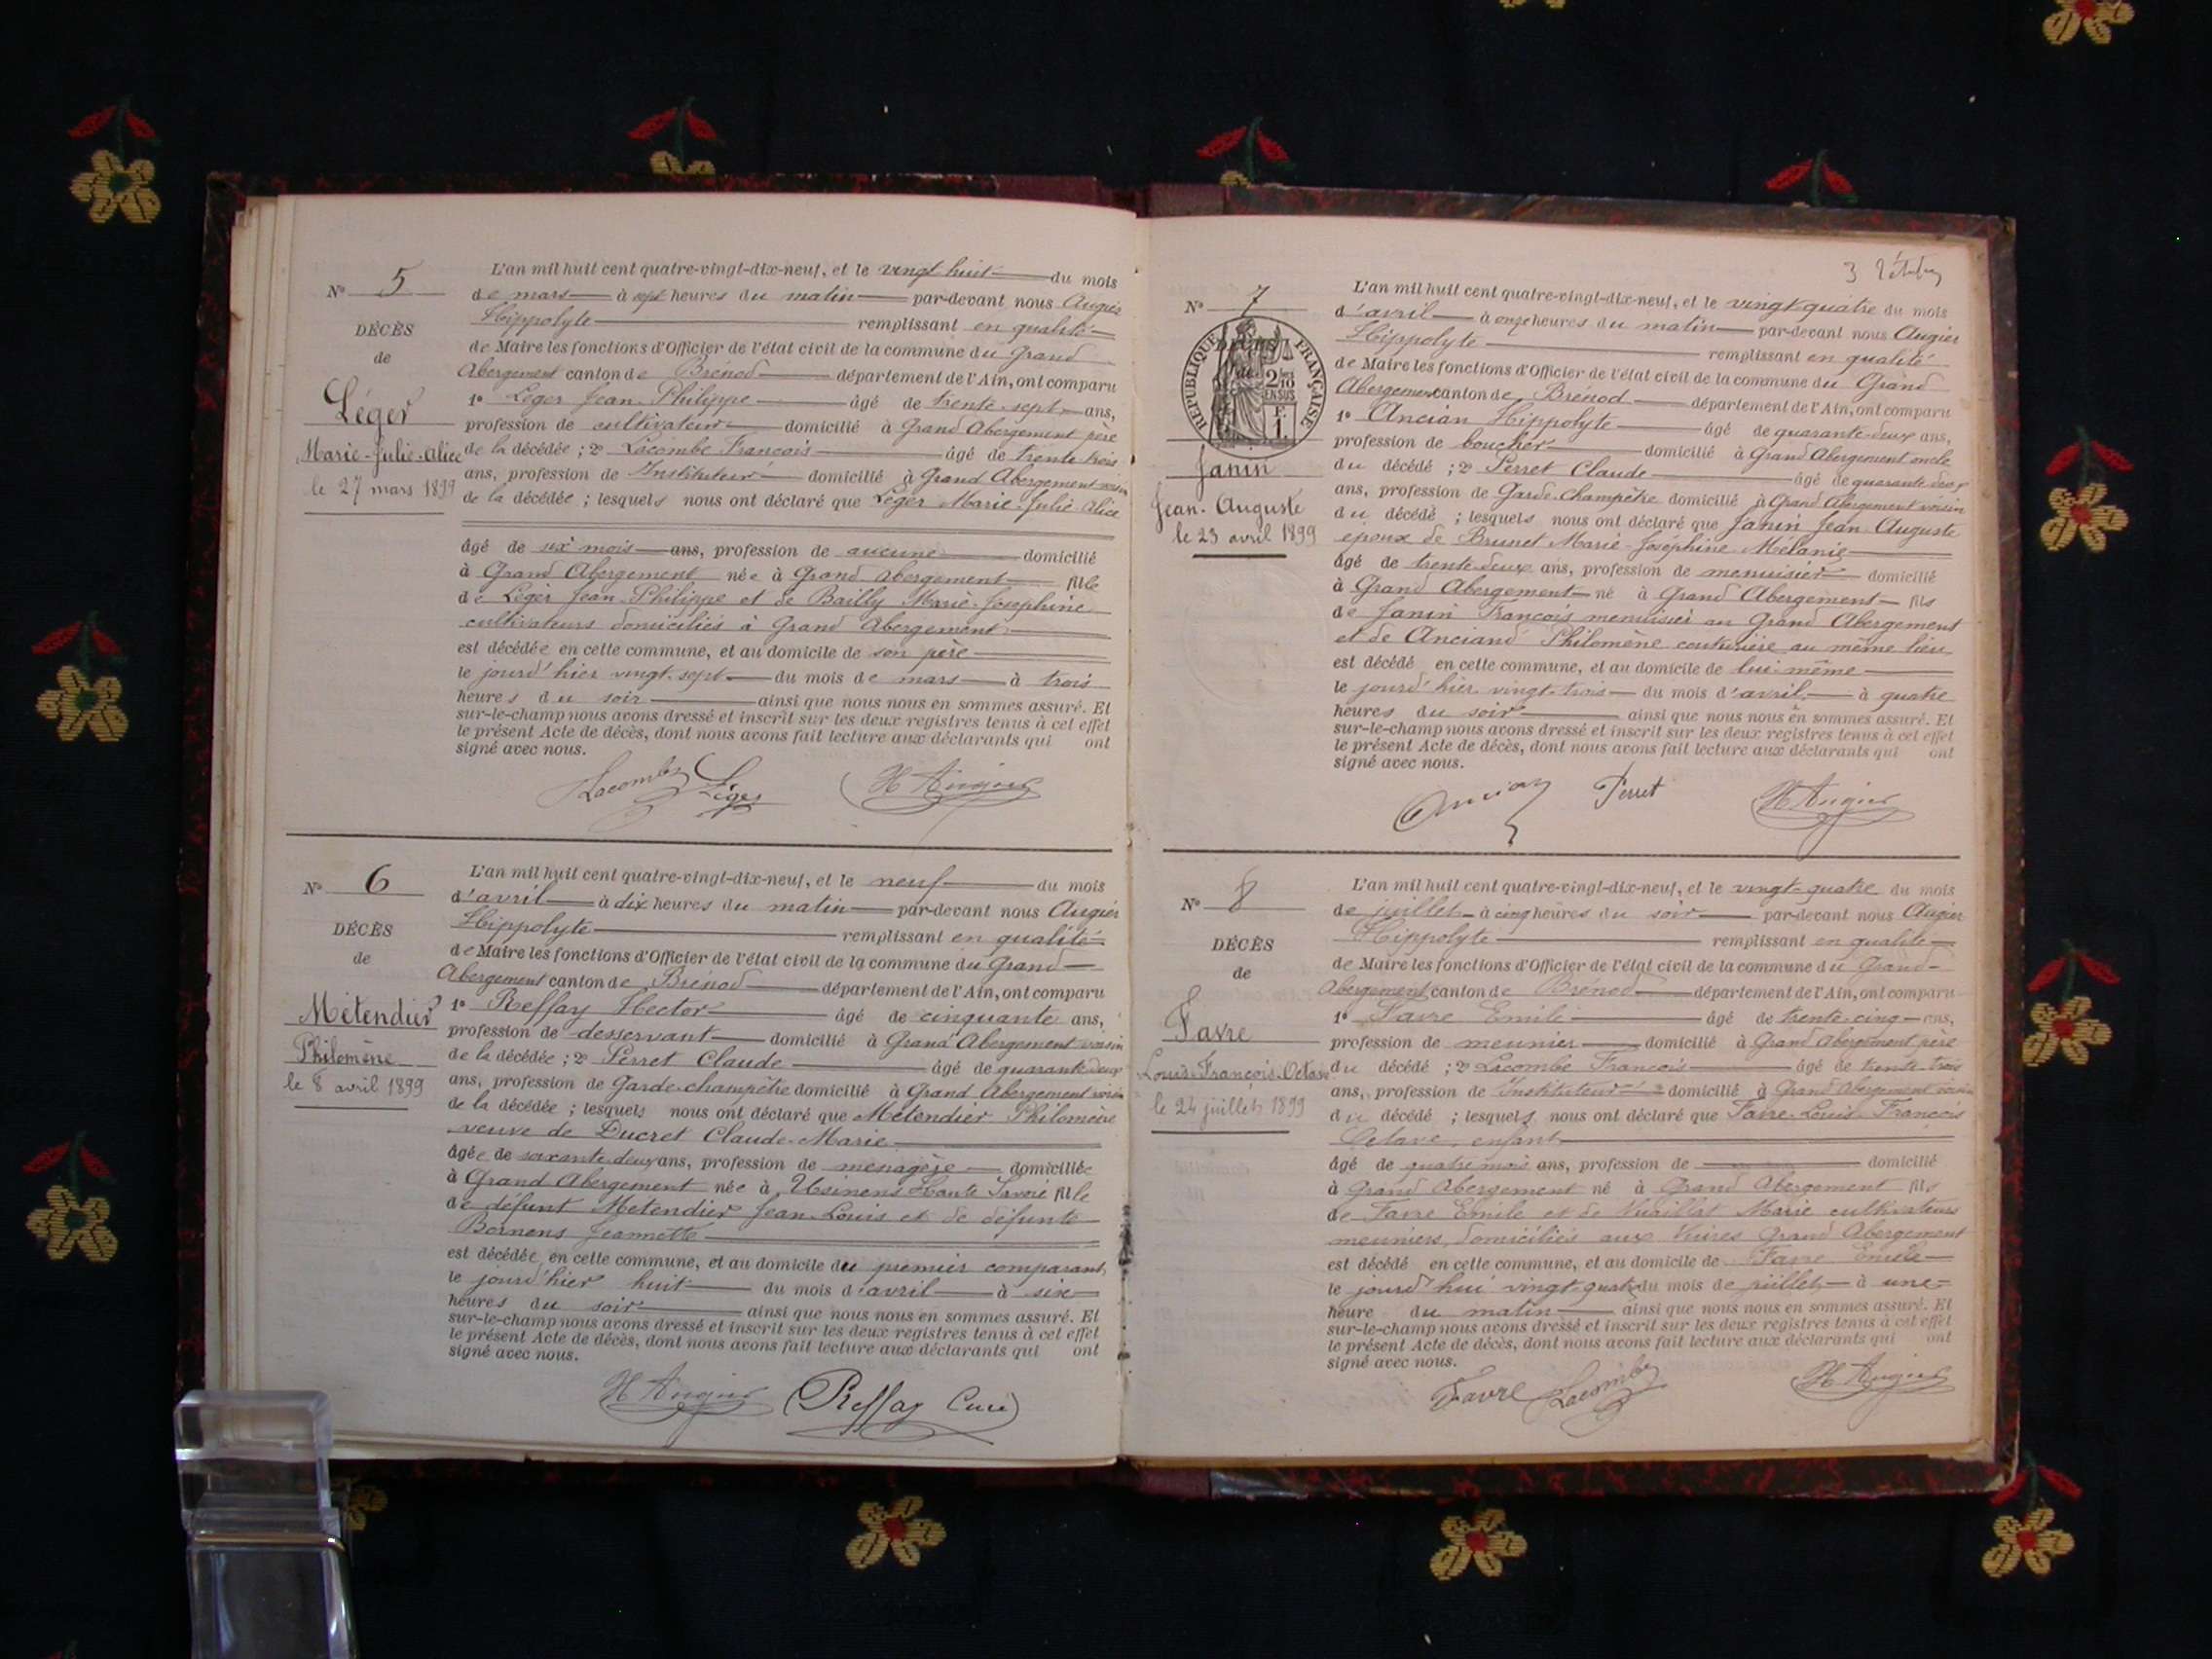 N° 5
DÉCÈS
de
Léger
Marie-Julie-Alice
le 27 mars 1899
L'an mil huit cent quatre-vingt-dix-neuf, et le vingt huit du mois
de mars à sept heures du matin par-devant nous Augier
Hippolyte remplissant en qualité
de Maire les fonctions d'Officier de l'état civil de la commune du Grand
Abergement canton de Brénod département de l'Ain, ont comparu
1° Léger Jean-Philippe âgé de trente-sept ans,
profession de cultivateur domicilié à Grand Abergement père
de la décédée ; 2° Lacombe François âgé de trente trois
ans, profession de Instituteur domicilié à Grand Abergement voisin
de la décédée ; lesquels nous ont déclaré que Léger Marie-Julie-Alice
âgé de six mois ans, profession de aucune domicilié
à Grand Abergement née à Grand Abergement fille
de Léger Jean-Philippe et de Bailly Marie-Josephine
cultivateurs domiciliés à Grand Abergement
est décédée en cette commune, et au domicile de son père
le jourd'hier vingt-sept du mois de mars à trois
heures du soir ainsi que nous nous en sommes assuré. Et
sur-le-champ nous avons dressé et inscrit sur les deux registres tenus à cet effet
le présent Acte de décès, dont nous avons fait lecture aux déclarants qui ont
signé avec nous.
Lacombe Léger H Augier
N° 6
DÉCÈS
de
Métendier
Philomène
le 8 avril 1899
L'an mil huit cent quatre-vingt-dix-neuf, et le neuf du mois
d'avril à dix heures du matin par-devant nous Augier
Hippolyte remplissant en qualité
de Maire les fonctions d'Officier de l'état civil de la commune du Grand
Abergement canton de Brénod département de l'Ain, ont comparu
1° Reffay Hector âgé de cinquante ans,
profession de desservant domicilié à Grand Abergement voisin
de la décédée ; 2° Perret Claude âgé de quarante deux
ans, profession de Garde-champêtre domicilié à Grand Abergement voisin
de la décédée ; lesquels nous ont déclaré que Métendier Philomène
veuve de Ducret Claude-Marie
âgée de soixante deux ans, profession de ménagère domiciliée
à Grand Abergement née à Usinens Haute Savoie fille
de défunt Metendier Jean-Louis et de défunte
Bornens Jeannette
est décédée en cette commune, et au domicile du premier comparant,
le jourd'hier huit du mois d'avril à six
heures du soir ainsi que nous nous en sommes assuré. Et
sur-le-champ nous avons dressé et inscrit sur les deux registres tenus à cet effet
le présent Acte de décès, dont nous avons fait lecture aux déclarants qui ont
signé avec nous.
H Augier Reffay Curé
3
N° 7
RÉPUBLIQUE FRANÇAISE
2/10 EN SUS
F. 1.
Janin
Jean-Auguste
le 23 avril 1899
L'an mil huit cent quatre-vingt-dix-neuf, et le vingt quatre du mois
d'avril à onze heures du matin par-devant nous Augier
Hippolyte remplissant en qualité
de Maire les fonctions d'Officier de l'état civil de la commune du Grand
Abergement canton de Brénod département de l'Ain, ont comparu
1° Ancian Hippolyte âgé de quarante-deux ans,
profession de boucher domicilié à Grand Abergement oncle
du décédé ; 2° Perret Claude âgé de quarante deux
ans, profession de Garde-champêtre domicilié à Grand Abergement voisin
du décédé ; lesquels nous ont déclaré que Janin Jean-Auguste
époux de Brunet Marie-Joséphine-Mélanie
âgé de trente-deux ans, profession de menuisier domicilié
à Grand Abergement né à Grand Abergement fils
de Janin François menuisier au Grand Abergement
et de Anciand Philomène couturière au même lieu
est décédé en cette commune, et au domicile de lui-même
le jourd'hier vingt-trois du mois d'avril à quatre
heures du soir ainsi que nous nous en sommes assuré. Et
sur-le-champ nous avons dressé et inscrit sur les deux registres tenus à cet effet
le présent Acte de décès, dont nous avons fait lecture aux déclarants qui ont
signé avec nous.
Ancian Perret H Augier
N° 8
DÉCÈS
de
Favre
Louis-François-Octave
le 24 juillet 1899
L'an mil huit cent quatre-vingt-dix-neuf, et le vingt-quatre du mois
de juillet à cinq heures du soir par-devant nous Augier
Hippolyte remplissant en qualité
de Maire les fonctions d'Officier de l'état civil de la commune du Grand-
Abergement canton de Brénod département de l'Ain, ont comparu
1° Favre Emile âgé de trente-cinq ans,
profession de meunier domicilié à Grand Abergement père
du décédé ; 2° Lacombe François âgé de trente-trois
ans, profession de Instituteur domicilié à Grand Abergement voisin
du décédé ; lesquels nous ont déclaré que Favre Louis-François
Octave, enfant
âgé de quatre mois ans, profession de domicilié
à Grand Abergement né à Grand Abergement fils
de Favre Emile et de Marie cultivateurs
meuniers, domiciliés aux Grand Abergement
est décédé en cette commune, et au domicile de Favre Emile
le jourd'hui vingt-quatre du mois de juillet à une
heure du matin ainsi que nous nous en sommes assuré. Et
sur-le-champ nous avons dressé et inscrit sur les deux registres tenus à cet effet
le présent Acte de décès, dont nous avons fait lecture aux déclarants qui ont
signé avec nous.
Favre Lacombe H Augier